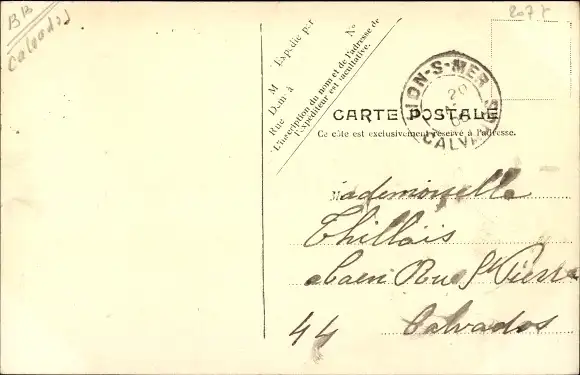 BB
Calvados
207
Expédié par
M
Dem à
Rue Nº
L'inscription du nom et de l'adresse de
l'Expéditeur est facultative.
ION-S-MER
20
CALV
CARTE POSTALE
Ce côte est exclusivement réservé à l'adresse.
Mademoiselle
Thillais
Caen Rue St Pierre
44 Calvados